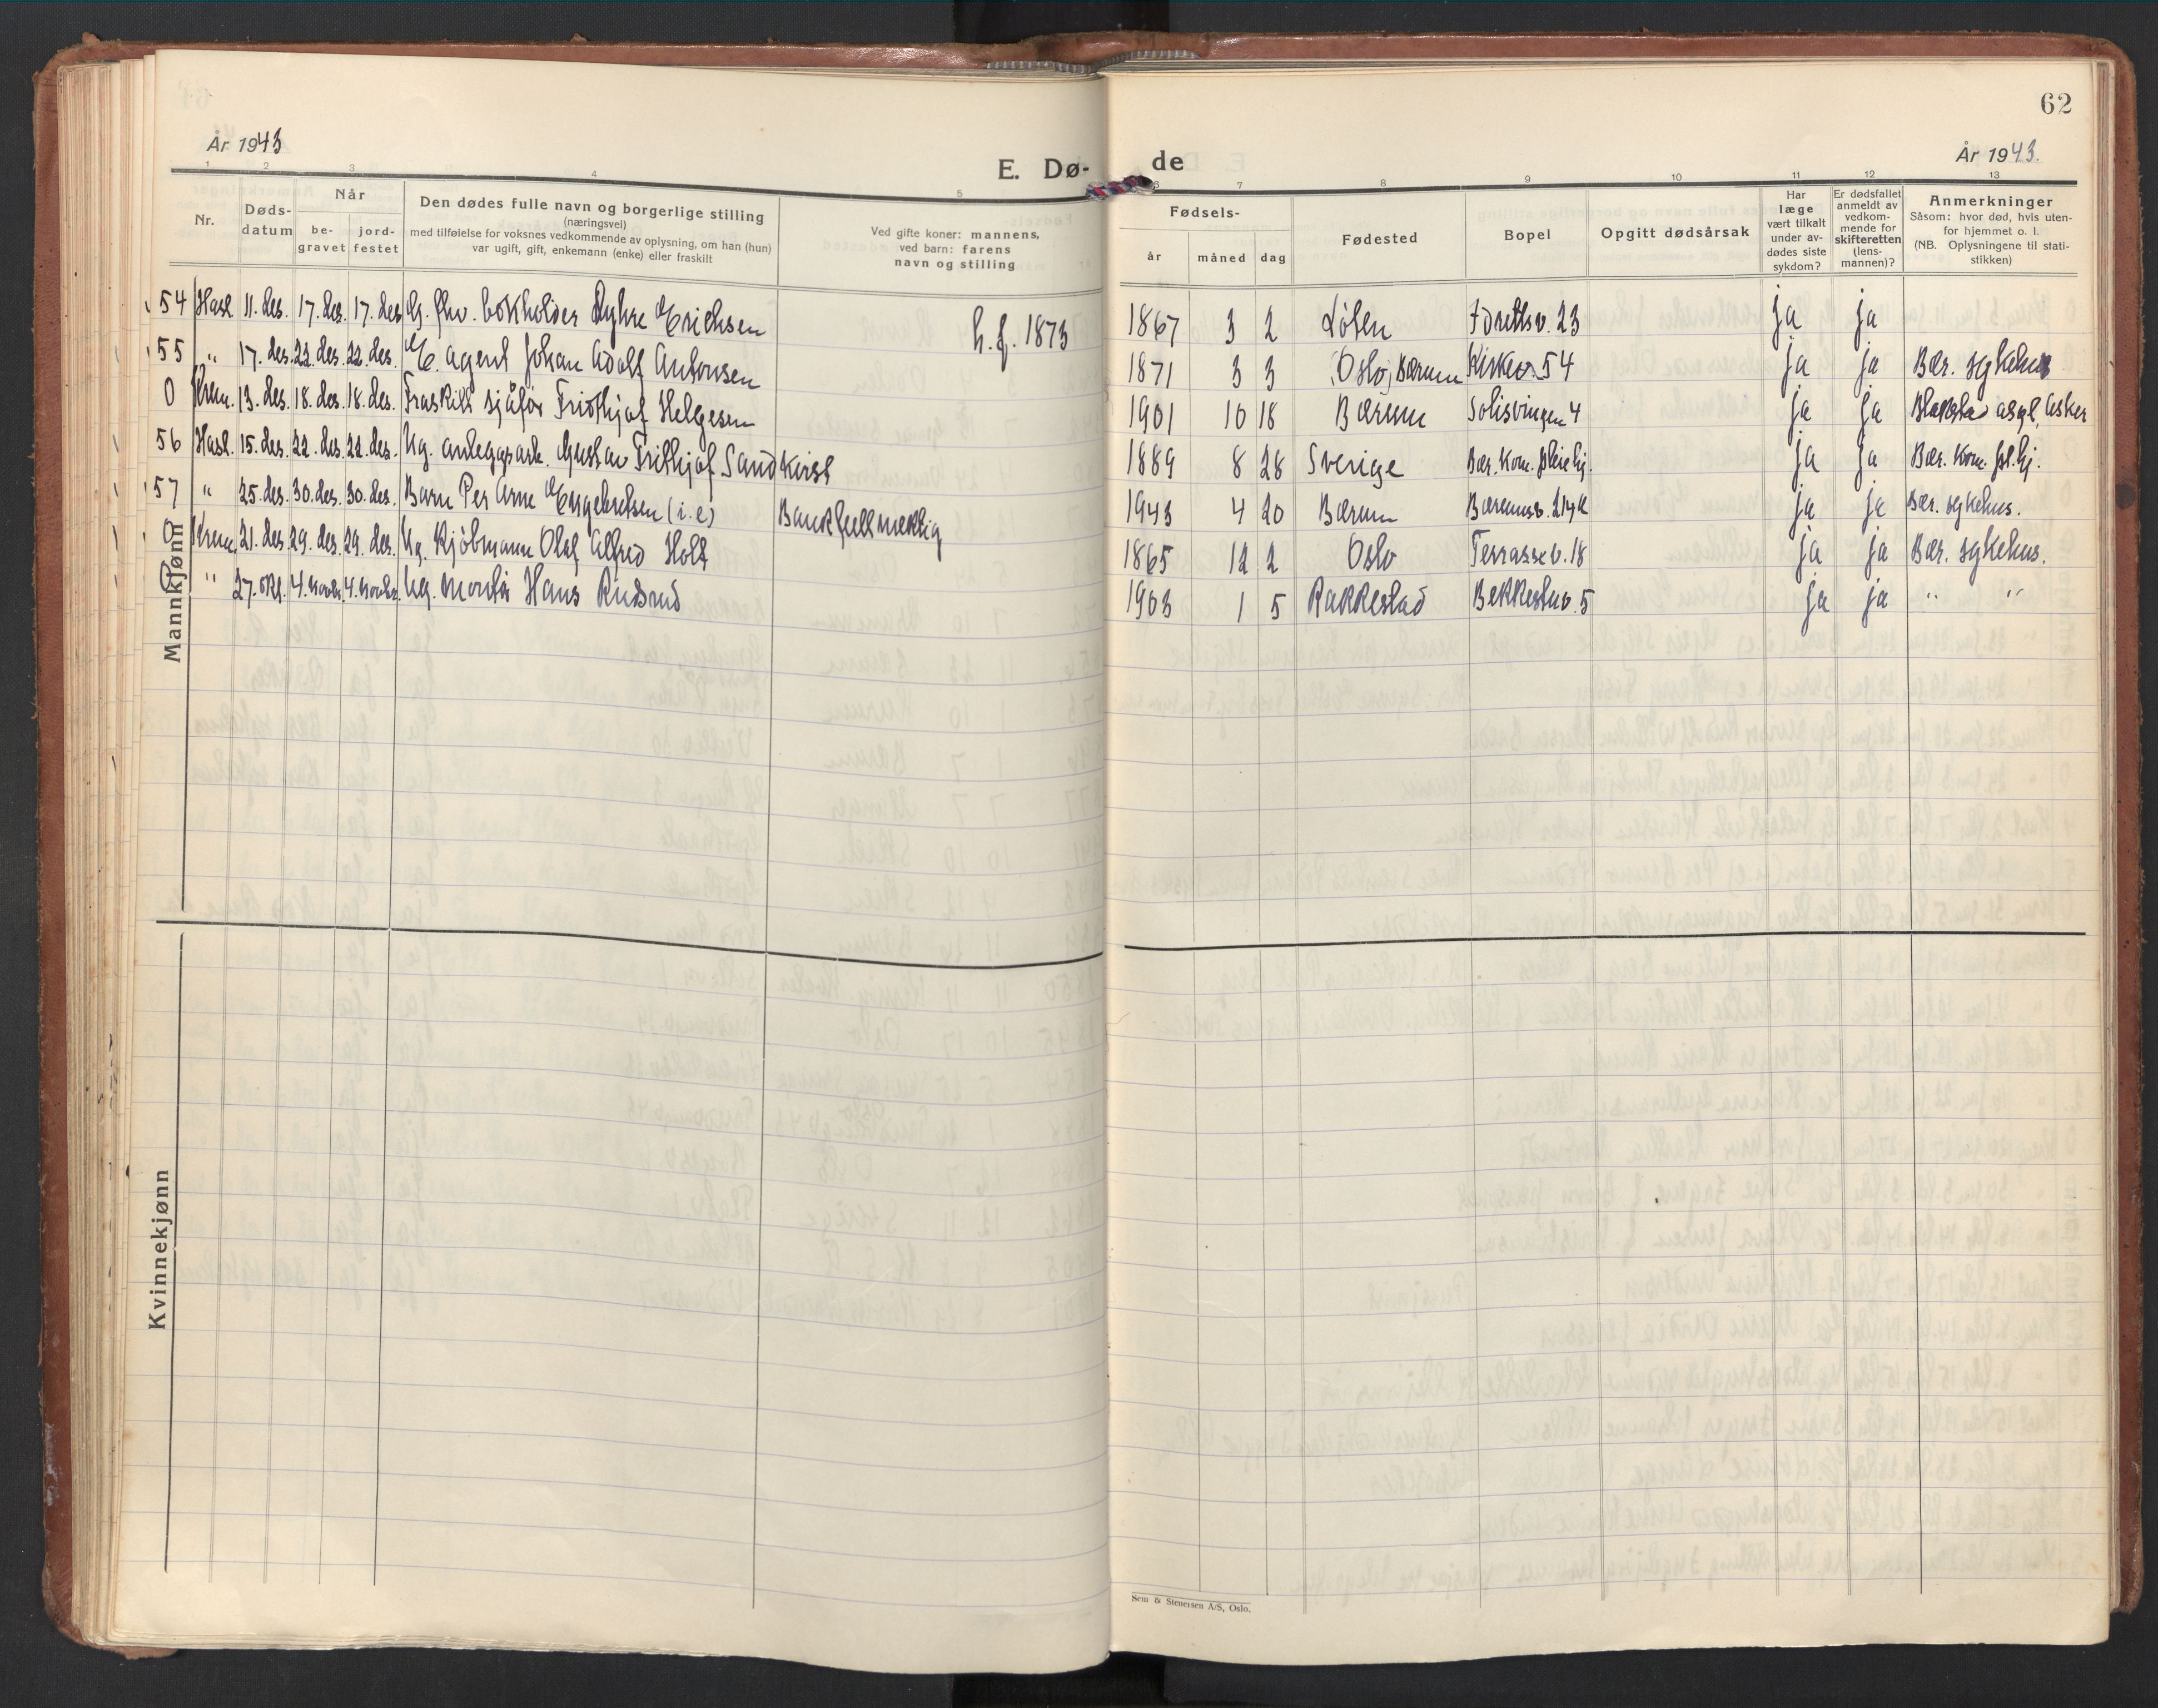 62
År 1943
År 1943.
E. Dø- de
1 2 3 4 5 6 7 8 9 10 11 12 13
Nr.
Døds-
datum
Når
be-
gravet
jord-
festet
Den dødes fulle navn og borgerlige stilling
(næringsvei)
med tilføielse for voksnes vedkommende av oplysning, om han (hun)
var ugift, gift, enkemann (enke) eller fraskilt
Ved gifte koner: mannens,
ved barn: farens
navn og stilling
Fødsels-
år måned dag
Fødested
Bopel
Opgitt dødsårsak
Har
læge
vært tilkalt
under av-
dødes siste
sykdom?
Er dødsfallet
anmeldt av
vedkom-
mende for
skifteretten
(lens-
mannen)?
Anmerkninger
Såsom: hvor død, hvis uten-
for hjemmet o. l.
(NB. Oplysningene til stati-
stikken)
Mannkjønn
54 Hasl. 11. des. 17. des. 17. des. G. fhv. bokholder Dyhre Erichsen h.f. 1873 1867 3 2 Løten Idrettsv. 23 ja ja
55 " 17. des. 22. des. 22. des. E. agent Johan Adolf Antonsen 1871 3 3 Oslo, Bærum Kirkev. 54 ja ja Bær. sykehus
0 Krem. 13. des. 18. des. 18. des. Fraskilt sjåfør Fridthjof Helgesen 1901 10 18 Bærum Solisvingen 4 ja ja Blakstad asyl, Asker
56 Hasl. 15. des. 22. des. 22. des. Ug. anleggsarb. Gustav Frithjof Sandkvist 1889 8 28 Sverige Bær. Kom. pleiehj. ja ja Bær. Kom. pl.hj.
57 " 25. des. 30. des. 30. des. Barn Per Arne Engebretsen (i.e) Bankfullmektig 1943 4 20 Bærum Bærumsv. ja ja Bær. sykehus.
0 Krem. 21. des. 29. des. 29. des. Ug. Kjøbmann Olaf Alfred Holt 1865 12 2 Oslo Terrassev. 18 ja ja Bær. sykehus.
0 " 27. okt. 4. novbr. 4. novbr. Ug. Montør Hans Rudsrud 1903 1 5 Rakkestad Bekkestuv. 5 ja ja " "
Kvinnekjønn
Sem & Stenersen A/S, Oslo.